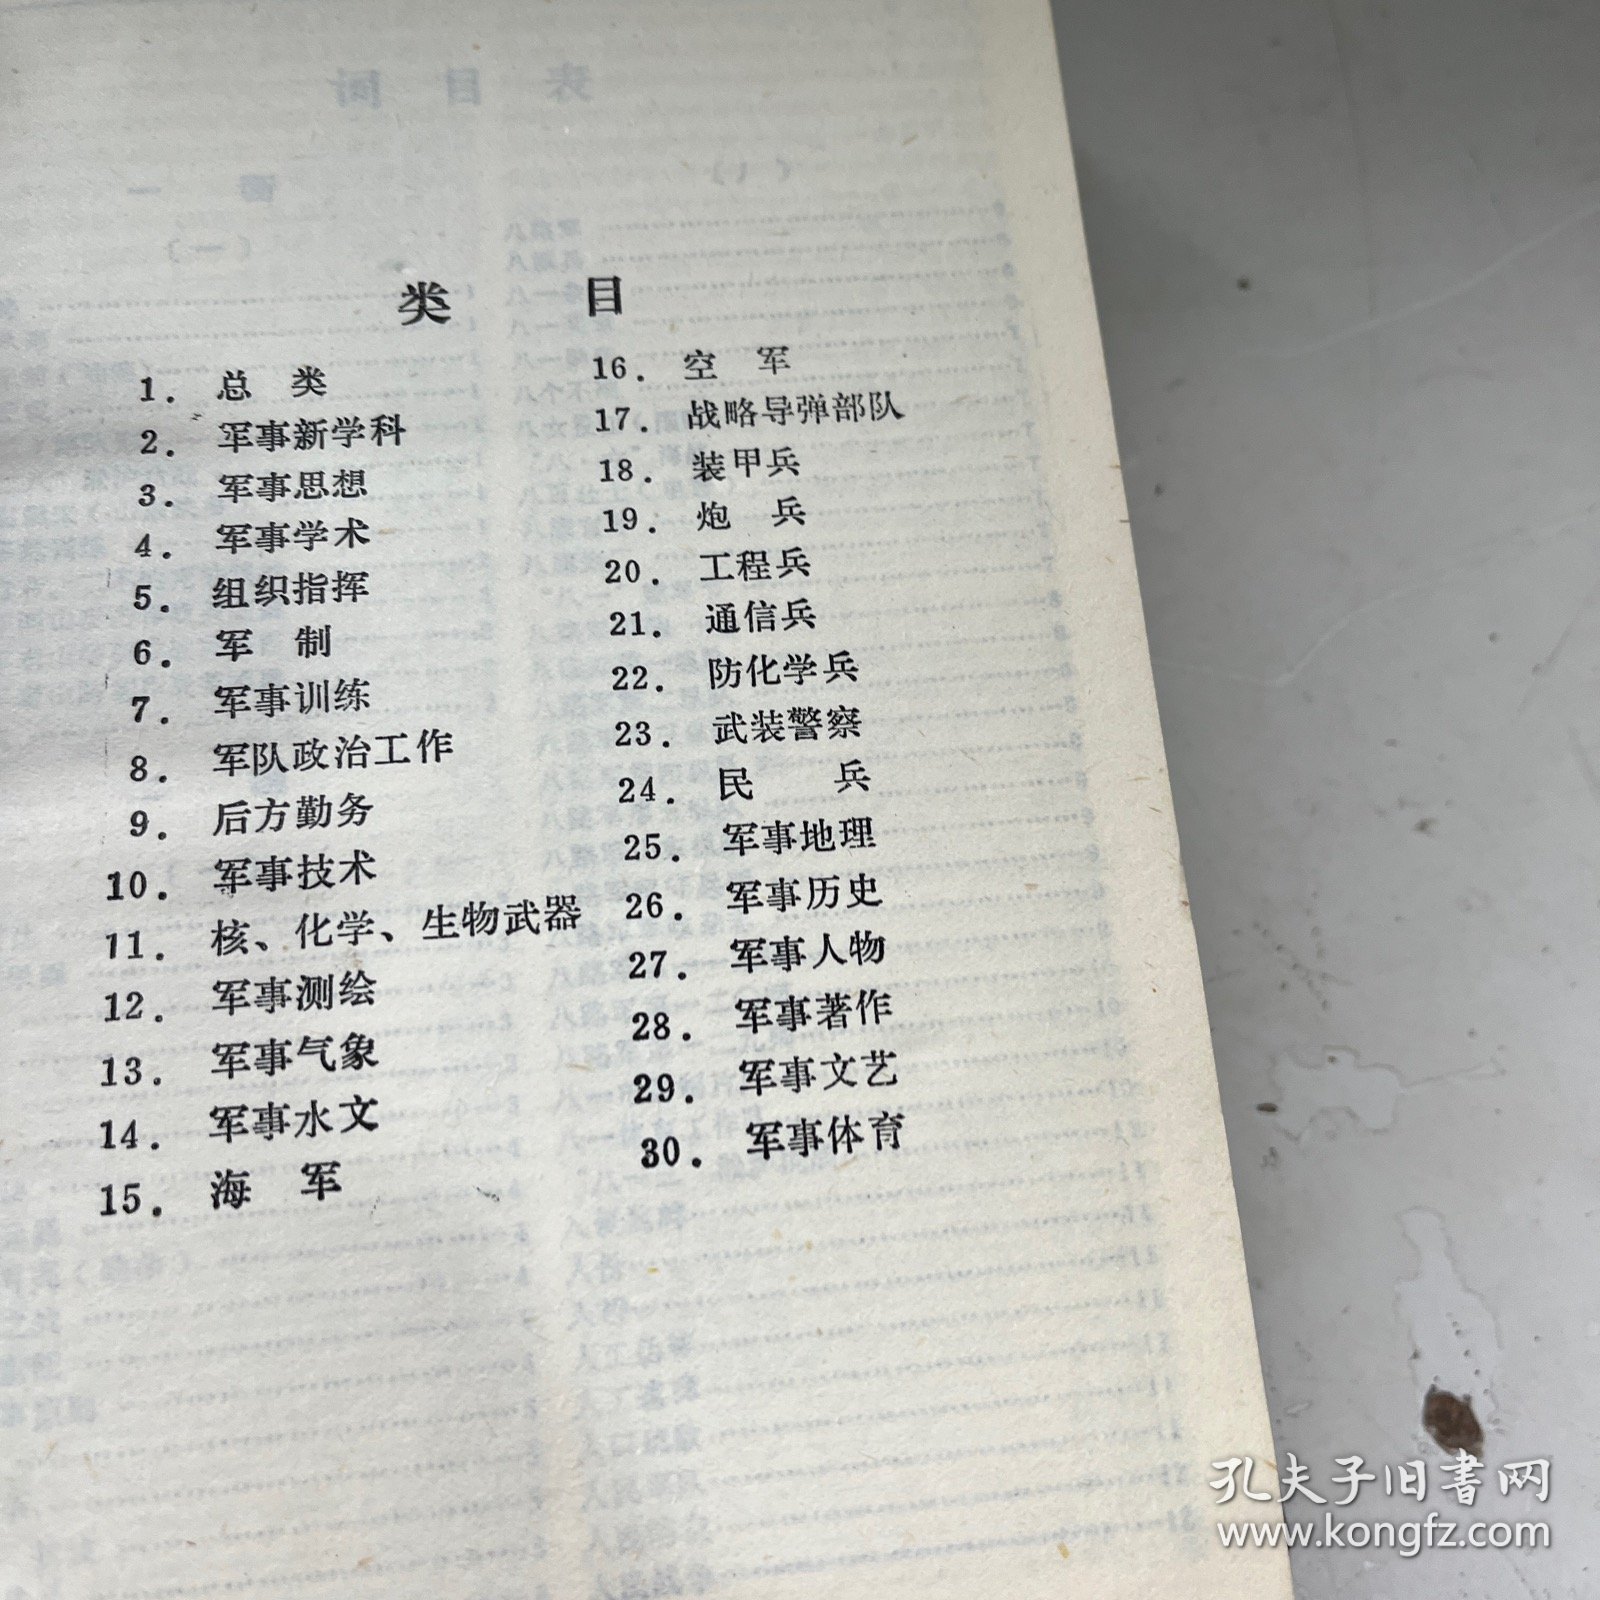 类 目
1. 总 类
2. 军事新学科
3. 军事思想
4. 军事学术
5. 组织指挥
6. 军 制
7. 军事训练
8. 军队政治工作
9. 后方勤务
10. 军事技术
11. 核、化学、生物武器
12. 军事测绘
13. 军事气象
14. 军事水文
15. 海 军
16. 空 军
17. 战略导弹部队
18. 装甲兵
19. 炮 兵
20. 工程兵
21. 通信兵
22. 防化学兵
23. 武装警察
24. 民 兵
25. 军事地理
26. 军事历史
27. 军事人物
28. 军事著作
29. 军事文艺
30. 军事体育
孔夫子旧书网
www.kongfz.com